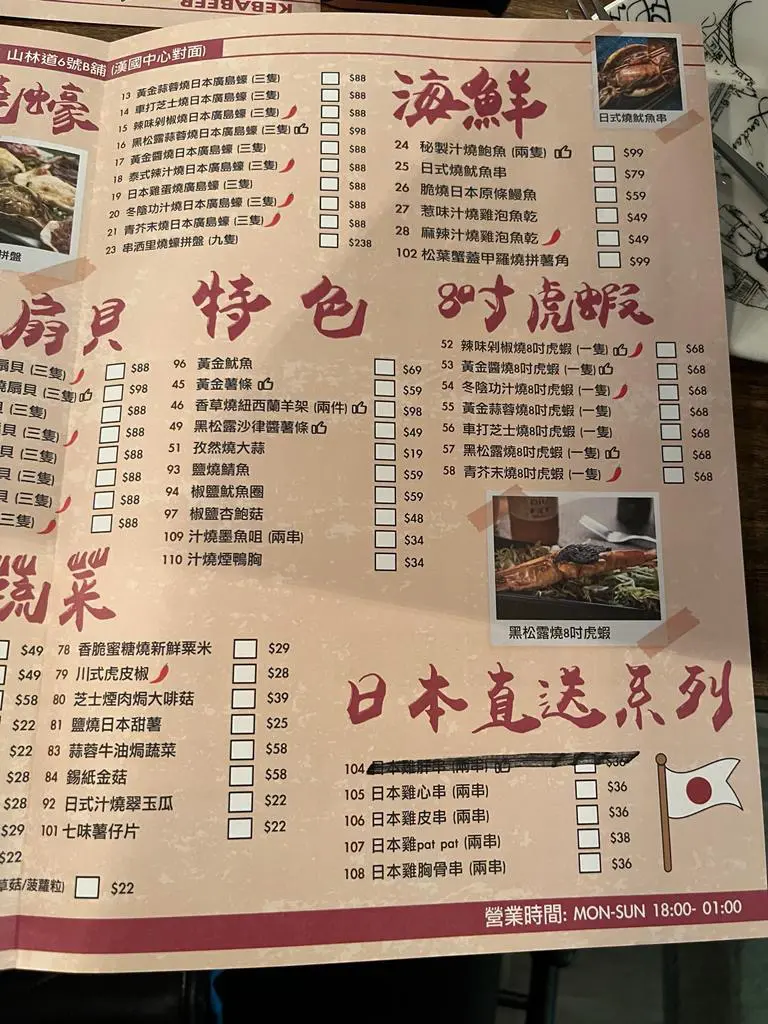 KEBABEER
山林道6號B舖 (漢國中心對面)
燒蠔
13 黃金蒜蓉燒日本廣島蠔 (三隻) $88
14 車打芝士燒日本廣島蠔 (三隻) $88
15 辣味剁椒燒日本廣島蠔 (三隻) $88
16 黑松露蒜蓉燒日本廣島蠔 (三隻) $98
17 黃金醬燒日本廣島蠔 (三隻) $88
18 泰式辣汁燒日本廣島蠔 (三隻) $88
19 日本雞蛋燒廣島蠔 (三隻) $88
20 冬陰功汁燒日本廣島蠔 (三隻) $88
21 青芥末燒日本廣島蠔 (三隻) $88
23 串洒里燒蠔拼盤 (九隻) $238
拼盤
海鮮
日式燒魷魚串
24 秘製汁燒鮑魚 (兩隻) $99
25 日式燒魷魚串 $79
26 脆燒日本原條鰻魚 $59
27 惹味汁燒雞泡魚乾 $49
28 麻辣汁燒雞泡魚乾 $49
102 松葉蟹蓋甲羅燒拼薯角 $99
扇貝
扇貝 (三隻) $88
燒扇貝 (三隻) $98
貝 (三隻) $88
貝 (三隻) $88
貝 (三隻) $88
貝 (三隻) $88
(三隻) $88
特色
96 黃金魷魚 $69
45 黃金薯條 $59
46 香草燒紐西蘭羊架 (兩件) $98
49 黑松露沙律醬薯條 $49
51 孜然燒大蒜 $19
93 鹽燒鯖魚 $59
94 椒鹽魷魚圈 $59
97 椒鹽杏鮑菇 $48
109 汁燒墨魚咀 (兩串) $34
110 汁燒煙鴨胸 $34
8吋虎蝦
52 辣味剁椒燒8吋虎蝦 (一隻) $68
53 黃金醬燒8吋虎蝦 (一隻) $68
54 冬陰功汁燒8吋虎蝦 (一隻) $68
55 黃金蒜蓉燒8吋虎蝦 (一隻) $68
56 車打芝士燒8吋虎蝦 (一隻) $68
57 黑松露燒8吋虎蝦 (一隻) $68
58 青芥末燒8吋虎蝦 (一隻) $68
黑松露燒8吋虎蝦
蔬菜
$49
$49
$58
$22
$22
$28
$28
$29
$22
草菇/菠蘿粒) $22
78 香脆蜜糖燒新鮮粟米 $29
79 川式虎皮椒 $28
80 芝士煙肉焗大啡菇 $39
81 鹽燒日本甜薯 $25
83 蒜蓉牛油焗蔬菜 $58
84 錫紙金菇 $58
92 日式汁燒翠玉瓜 $22
101 七味薯仔片 $22
日本直送系列
104 日本雞肝串 (兩串) $36
105 日本雞心串 (兩串) $36
106 日本雞皮串 (兩串) $36
107 日本雞pat pat (兩串) $38
108 日本雞胸骨串 (兩串) $36
營業時間: MON-SUN 18:00- 01:00